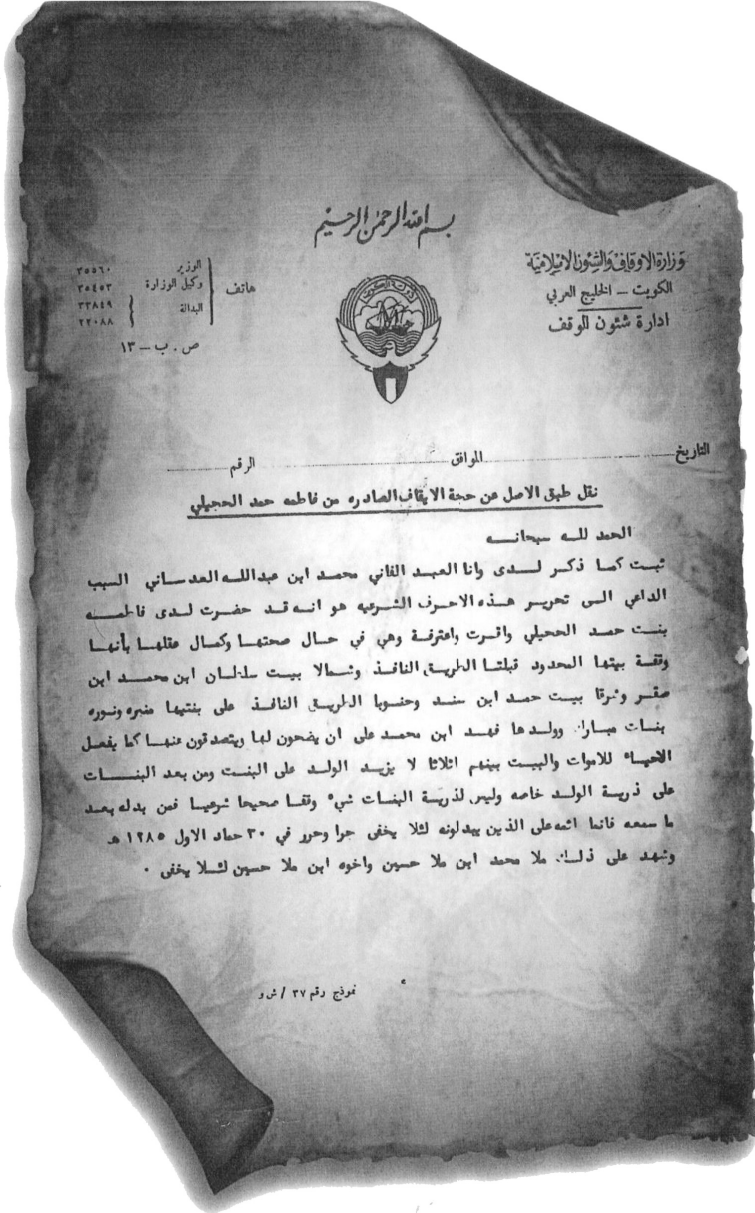 بسم الله الرحمن الرحيم
وزارة الاوقاف والشئون الاسلامية
الكويت — الخليج العربي
ادارة شئون الوقف
دولة الكويت
هاتف
الوزير ٣٥٥٦٠
وكيل الوزارة ٣٥٤٥٣
البدالة ٣٣٨٤٩
٢٢٠٨٨
ص . ب — ١٣
التاريخ الموافق الرقم
نقل طبق الاصل عن حجة الايقاف الصادره من فاطمه حمد الحجيلي
الحمد للـه سبحانـه
ثبت كما ذكر لـدى وانا العبد الفاني محمد ابن عبداللـه العدساني السبب
الداعي الـى تحرير هـذه الاحرف الشرعيه هو انه قد حضرت لدى فاطمـه
بنت حمد الحجيلي واقرت واعترفة وهي في حال صحتها وكمال عقلها بأنها
وقفة بيتها المحدود قبلتا الطريق النافذ وشمالا بيت سلطان ابن محمد ابن
صقر وشرقا بيت حمد ابن سند وجنوبا الطريق النافذ على بنتيها منيره ونوره
بنات مبارك وولدها فهد ابن محمد على ان يضحون لها ويتصدقون عنها كما يفعل
الاحياء للاموات والبيت بينهم اثلاثا لا يزيد الولد على البنت ومن بعد البنات
على ذرية الولد خاصه وليس لذرية البنات شيء وقفا صحيحا شرعيا فمن بدله بعد
ما سمعه فانما اثمه على الذين يبدلونه لئلا يخفى جرا وحرر في ٣٠ جماد الاول ١٢٨٥ هـ
وشهد على ذلك ملا محمد ابن ملا حسين واخوه ابن ملا حسين لئلا يخفى ٠
نموذج رقم ٣٧ / ش و